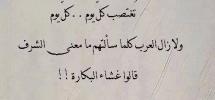 تُغتصب كلّ يوم . . كلّ يوم
ولا زال العرب كلما سألتهم ما معنى الشرف
قالوا غشاء البكارة !!